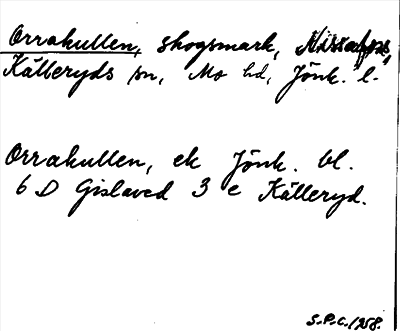 Orrakullen, skogsmark,
Källeryds sn, Mo hd, Jönk. l.
Orrakullen, ek Jönk. bl.
6 D Gislaved 3 e Källeryd.
S.P.C. 1958.